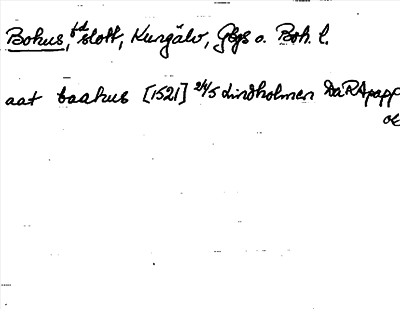 Bohus, fd slott, Kungälv, Gbgs o. Boh. l.
aat baahus [1521] 24/5 Lindholmen DaRA papp